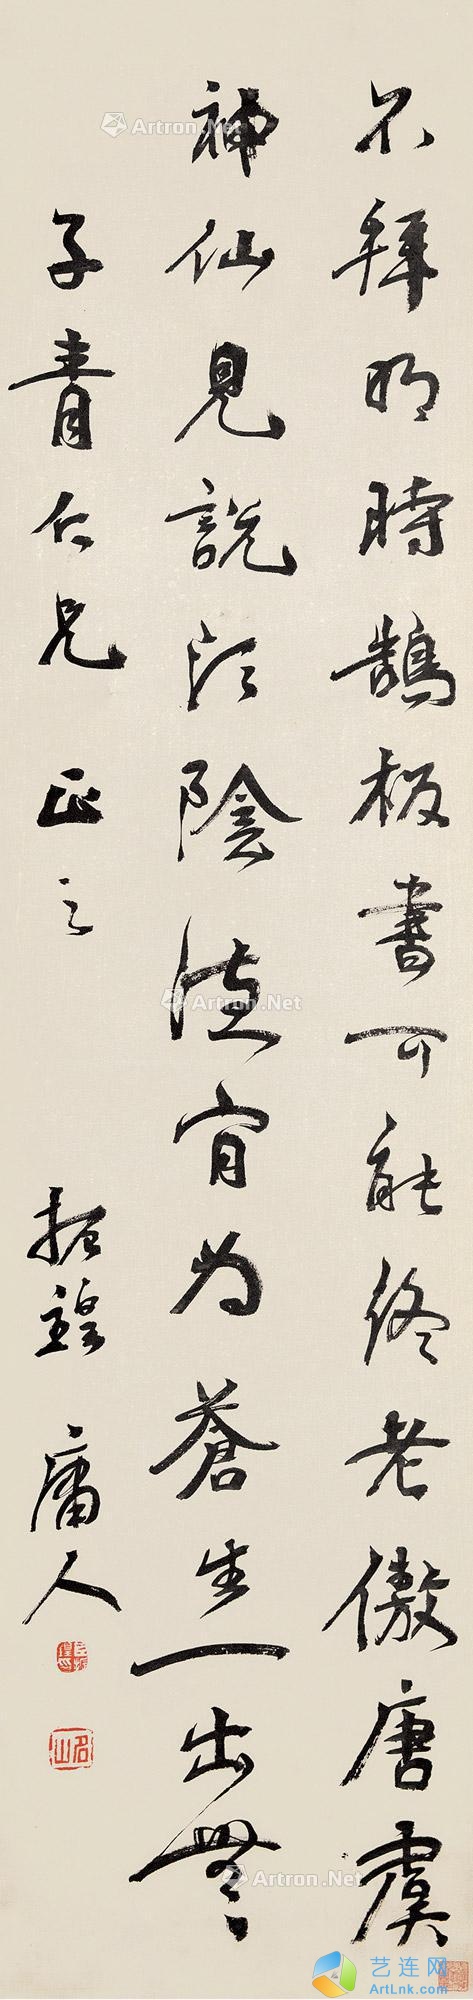 不拜明時鵠板書可能終老傲唐虞
神仙見說行陰德肯為蒼生一出無
子青仁兄 正之 振鍠 庸人
名山
Artron.Net
Artron.Net
Artron.Net
艺连网
ArtLnk.com